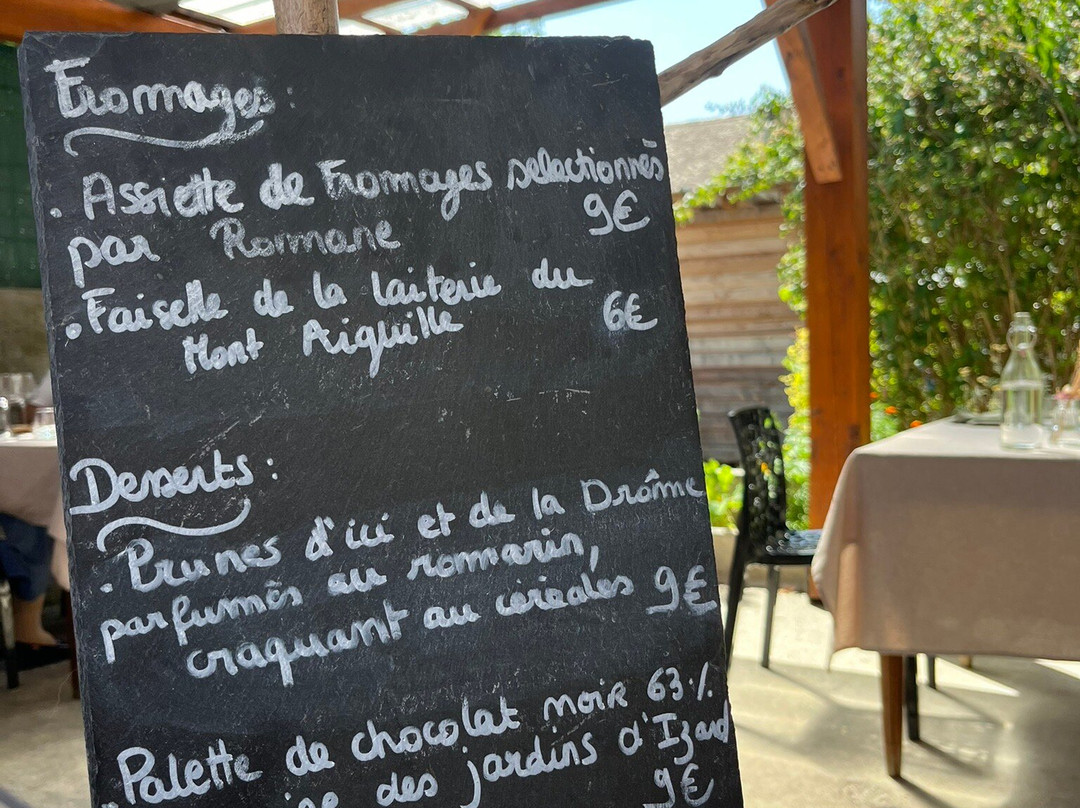 Fromages :
. Assiette de Fromages selectionnés
par Romane 9€
. Faisselle de la laiterie du
Mont Aiguille 6€
Desserts :
. Prunes d'ici et de la Drôme
parfumés au romarin,
craquant au céréales 9€
Palette de chocolat noir 63%
des jardins d'Izard
9€